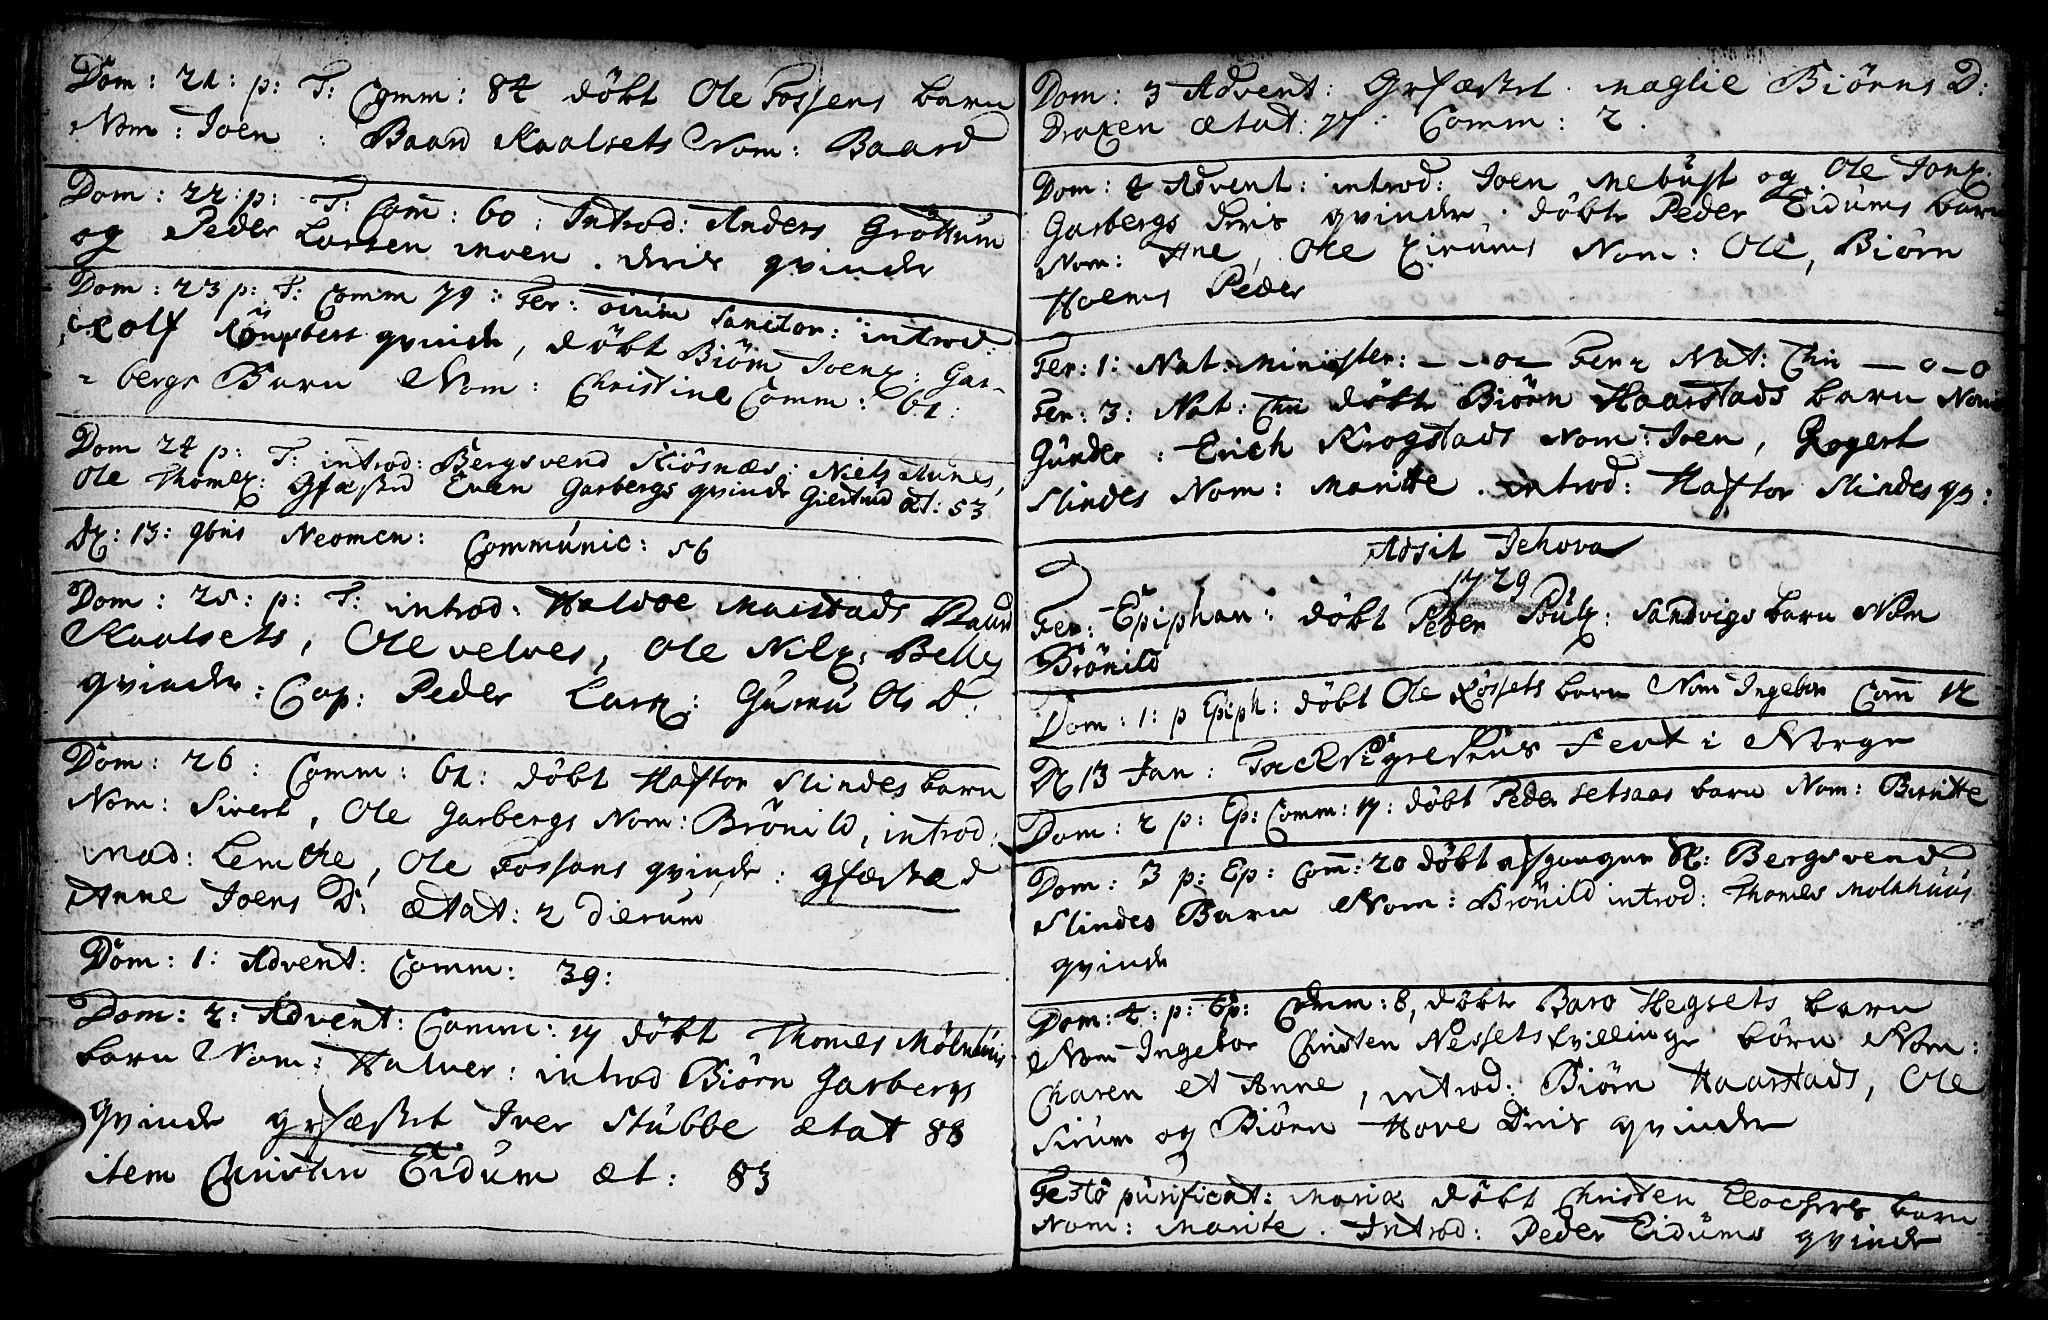 Dom: 21: p: T: Comm: 84 döbt Ole Fossens barn
Nom: Joen : Baard Kaalsets Nom: Baard
Dom: 22: p: T: Com̄: 60: Introd: Anders Gröttum
og Peder Larsen Moen. Dris qvinder
Dom: 23 p: T: Comm 79: Fer: oium Sanctor: introd:
Rolf qvinde, döbt Biörn Joenx: Gar-
= bergs Barn Nom: Christine Comm: 61:
Dom 24 p: T: introd: Bergsvend Kiösnæs: Niels Aunes,
Ole Thomex: Gfæsted Even Garbergs qvinde Giertrud æt: 53
Dx: 13: 9bris Neomen: Communic: 56
Dom: 25: p: T: introd: Haldoe Marstads Baard
Kaalsets, Ole velves, Ole Nilx: Belles
qvinder: Cop: Peder Larx: Guru Ols D:
Dom: 26: Comm: 61: döbt Haftor Slindes barn
Nom: Sivert, Ole Garbergs Nom: Brönild, introd:
Mad: Lemche, Ole Fossans qvinde: gfæsted
Anne Joens D: ætat: 2 dierum
Dom: 1: Advent: Comm: 39:
Dom: 2: Advent: Comm: 17 döbt Thomes Mölnhuus
barn Nom: Halver: introd Biörn Garbergs
qvinde grfæstet Iver Stübbe ætat 88
item Christen Eidum æt: 83
Dom: 3 Advent: Grfæstet. Maglie Biörns D:
Draxen ætat: 77: Comm: 2.
Dom: 4 Advent: introd: Joen Mebust og Ole Jonx:
Garbergs Dris qvinder. döbt Peder Eidums barn
Nom: Ane, Ole Nom: Ole, Biörn
Hoems Peder
Fer: 1: Nat: Minister: - - 02 - Fer 2 Nat: Chri - 0 - 0
Fer: 3: Nat: Chri döbt Biörn Haarstads barn Nom
Gunder: Erich Krogstads Nom: Joen, Rogert
Slindes Nom: Maritte. introd: Haftor Slindes qv:
Adsit Jehova
1729
Fer: Epiphan: döbt Peder Poulx: Sandvigs barn Nom
Brönild
Dom: 1: p Epiph: döbt Ole Rössets barn Nom Ingebor Com̄ 12
Dx 13 Jan: Tacksigelsens Fest i Norge
Dom: 2 p: Ep: Comm: 17: döbt Peder Setsaas barn Nom: Biritte
Dom: 3 p: Ep: Com̄: 20 döbt afgangne Bergsvend
Slindes Barn Nom: Brönild introd: Thomes Molnhuus
qvinde
Dom: 4: p: Ep: Comm: 8, döbt Baro Hegsets barn
Nom Ingebor Christen Nessets tvillinge börn Nom:
Charen et Anne, introd: Biörn Haarstads, Ole
Sirum og Biörn Hove Dris qvinder
Festo purificat: Mariæ döbt Christen barn
Nom: Marite. Introd: Peder Eidums qvinde